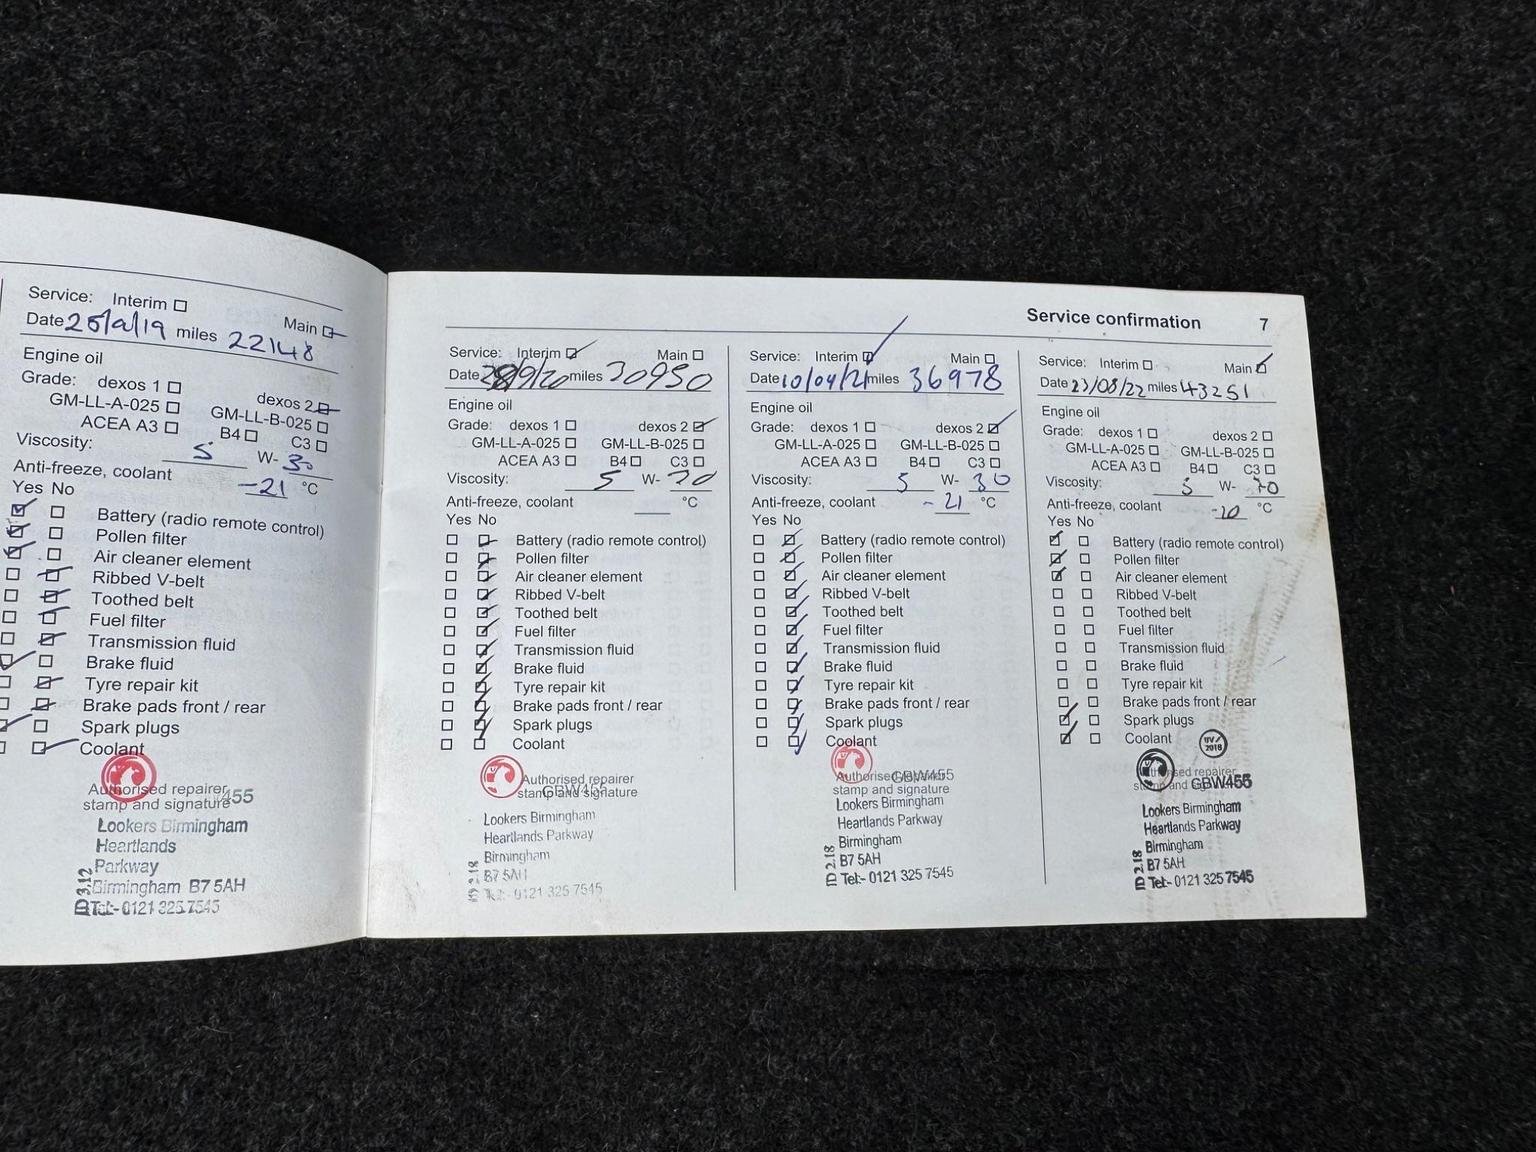 Service: Interim
Main
Date 25/9/19 miles 22148
Engine oil
Grade: dexos 1
dexos 2
GM-LL-A-025 GM-LL-B-025
ACEA A3 B4 C3
Viscosity: 5 W- 30
Anti-freeze, coolant -21 °C
Yes No
Battery (radio remote control)
Pollen filter
Air cleaner element
Ribbed V-belt
Toothed belt
Fuel filter
Transmission fluid
Brake fluid
Tyre repair kit
Brake pads front / rear
Spark plugs
Coolant
Authorised repairer
stamp and signature 455
Lookers Birmingham
Heartlands
Parkway
Birmingham B7 5AH
Tel:- 0121 325 7545
ID 3.12
Service confirmation 7
Service: Interim Main
Date /9/20 miles 30950
Engine oil
Grade: dexos 1 dexos 2
GM-LL-A-025 GM-LL-B-025
ACEA A3 B4 C3
Viscosity: 5 W- 30
Anti-freeze, coolant °C
Yes No
Battery (radio remote control)
Pollen filter
Air cleaner element
Ribbed V-belt
Toothed belt
Fuel filter
Transmission fluid
Brake fluid
Tyre repair kit
Brake pads front / rear
Spark plugs
Coolant
Authorised repairer
stamp and signature
GBW455
Lookers Birmingham
Heartlands Parkway
Birmingham
B7 5AH
Tel:- 0121 325 7545
ID 2.18
Service: Interim Main
Date 10/04/21 miles 36978
Engine oil
Grade: dexos 1 dexos 2
GM-LL-A-025 GM-LL-B-025
ACEA A3 B4 C3
Viscosity: 5 W- 30
Anti-freeze, coolant -21 °C
Yes No
Battery (radio remote control)
Pollen filter
Air cleaner element
Ribbed V-belt
Toothed belt
Fuel filter
Transmission fluid
Brake fluid
Tyre repair kit
Brake pads front / rear
Spark plugs
Coolant
Authorised repairer GBW455
stamp and signature
Lookers Birmingham
Heartlands Parkway
Birmingham
B7 5AH
Tel:- 0121 325 7545
ID 2.18
Service: Interim Main
Date 23/08/22 miles 43251
Engine oil
Grade: dexos 1 dexos 2
GM-LL-A-025 GM-LL-B-025
ACEA A3 B4 C3
Viscosity: 5 W-
Anti-freeze, coolant -20 °C
Yes No
Battery (radio remote control)
Pollen filter
Air cleaner element
Ribbed V-belt
Toothed belt
Fuel filter
Transmission fluid
Brake fluid
Tyre repair kit
Brake pads front / rear
Spark plugs
Coolant
UV/
2018
Authorised repairer
stamp and signature
GBW455
Lookers Birmingham
Heartlands Parkway
Birmingham
B7 5AH
Tel:- 0121 325 7545
ID 2.18